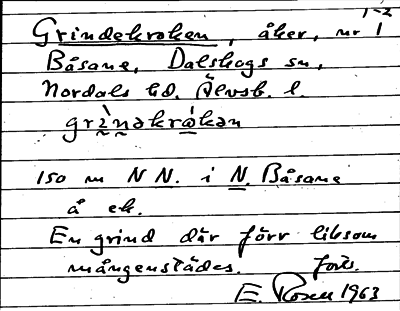 1-2
Grindekroken, åker, nr 1
Båsane, Dalskogs sn,
Nordals hd. Älvsb. l.
grìnəkrákən
150 m NN. i N. Båsane
å ek.
En grind där förr liksom
mångenstädes. forts.
E. Rosén 1963